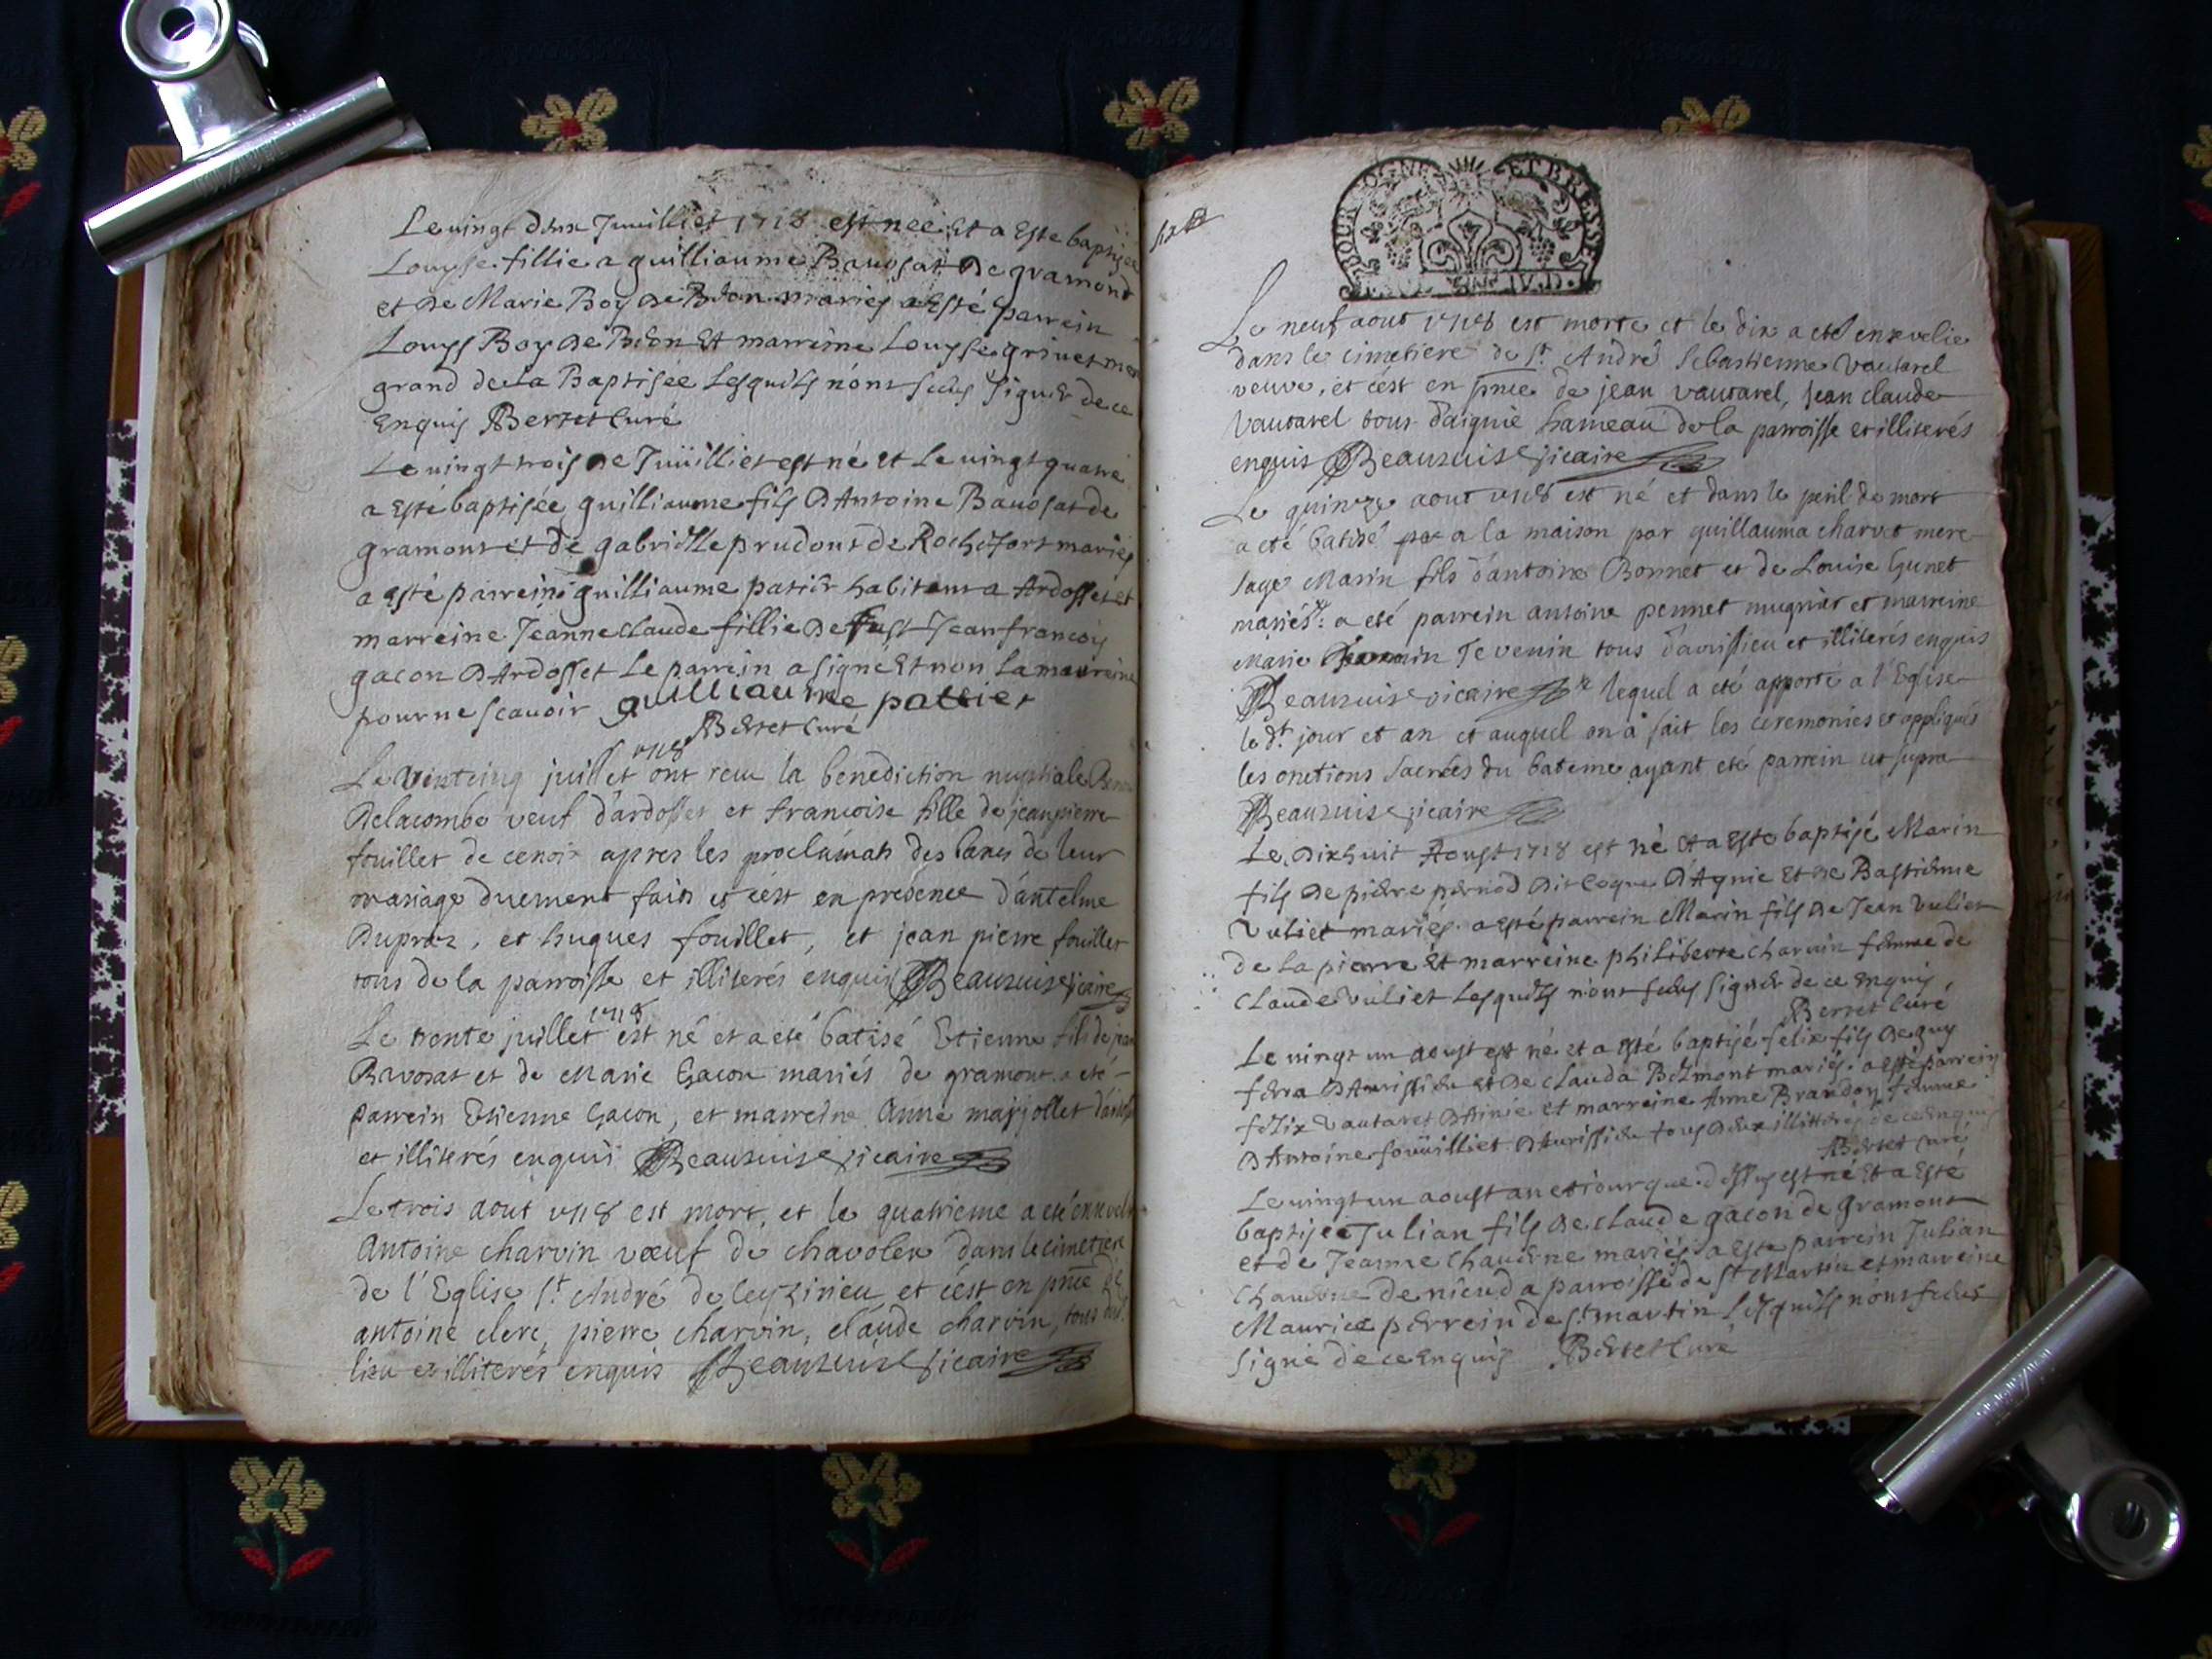 Le vingt deux Juilliet 1718 est née Et a Esté baptisée
Louyse fillie a guilliaume Bavosat De gramond
et de Marie Boy de Bion mariés a Esté parrein
Louys Boy De Bion Et marreine Louyse grinet
grand de la Baptisée Lesquels n'ont sceus signer de ce
Enquis Bertet Curé
Le vingt trois De Juilliet est né et Le vingt quatre
a Esté baptisée guilliaume fils D'Antoine Bavosat de
gramont et de gabrielle prudont de Rochefort mariés
a esté parrein guilliaume patier habitant a Ardosset et
marreine Jeanne claude fillie De Jean francois
gacon D'Ardosset Le parrein a signé Et non La marreine
pour ne scavoir guilliaume patier
Bertet Curé
1718
Le vintcinq juillet ont recu la benediction nuptiale
Delacombe veuf d'ardosset et francoise fille de jeanpierre
fouillet de cenoix apres les proclamats des bans de leur
mariage duement faits et c'est en presence d'antelme
Dupraz, et hugues fouillet, et jean pierre fouillet
tous de la parroisse et illiterés enquis Beauzuise vicaire
1718
Le trente juillet est né et a eté batisé Etienne fils de jean
Bavosat et de Marie Gacon mariés de gramont a eté
parrein Etienne Gacon, et marreine Anne marjollet
et illiterés enquis Beauzuise vicaire
Le trois aout 1718 est mort, et le quatrieme a eté enseveli
Antoine charvin vœuf de chavoley dans le cimetiere
de l'Eglise St. André de ceyzirieu et c'est en pnce de
antoine clerc, pierre charvin, claude charvin, tous
lieu et illiterés enquis Beauzuise vicaire
BOURGOGNE ET BRESSE
Le neuf aout 1718 est morte et le dix a eté ensevelie
dans le cimetiere de St. André Sebastienne Vautarel
veuve, et c'est en pnce de jean vautarel, jean claude
Vautarel tous d'aignie hameau de la parroisse et illiterés
enquis Beauzuise vicaire
Le quinze aout 1718 est né et dans le peril de mort
a eté batisé a la maison par guillauma charvet mere
sage Marin fils d'antoine Bonnet et de Louise Gunet
mariés: a eté parrein antoine pennet mugnier et marreine
Marie Tevenin tous d'avrissieu et illiterés enquis
Beauzuise vicaire lequel a eté apporté a l'Eglise
le dt. jour et an et auquel on a fait les ceremonies et appliqués
les onctions sacrées du bateme ayant eté parrein ut supra
Beauzuise vicaire
Le Dixhuit Aoust 1718 est né Et a Esté baptisé Marin
fils De pierre pernod Dit Coque D'Agnie Et De Bastienne
Vuliet mariés. a esté parrein Marin fils De Jean Vuliet
de La pierre Et marreine philiberte charvin femme de
Claude Vuliet Lesquels n'ont sceus signer de ce Enquis
Bertet Curé
Le vingt un aoust est né et a esté baptisé felix fils De guy
ferra D'Avrissieu et De clauda Belmont mariés. a esté parrein
felix Vautaret D'Ainie et marreine Anne Brandon femme
D'Antoine fouilliet D'Avrissieu tous deux illitterés de ce Enquis
Bertet Curé
Le vingt un aoust an et jour que dessus est né Et a Esté
baptisée Julian fils De claude gacon de gramont
et de Jeanne Chaudrne mariés a Esté parrein Julian
de parroisse de St Martin et marreine
Maurice perrein de St martin Lesquels n'ont sceus
signé de ce Enquis Bertet Curé